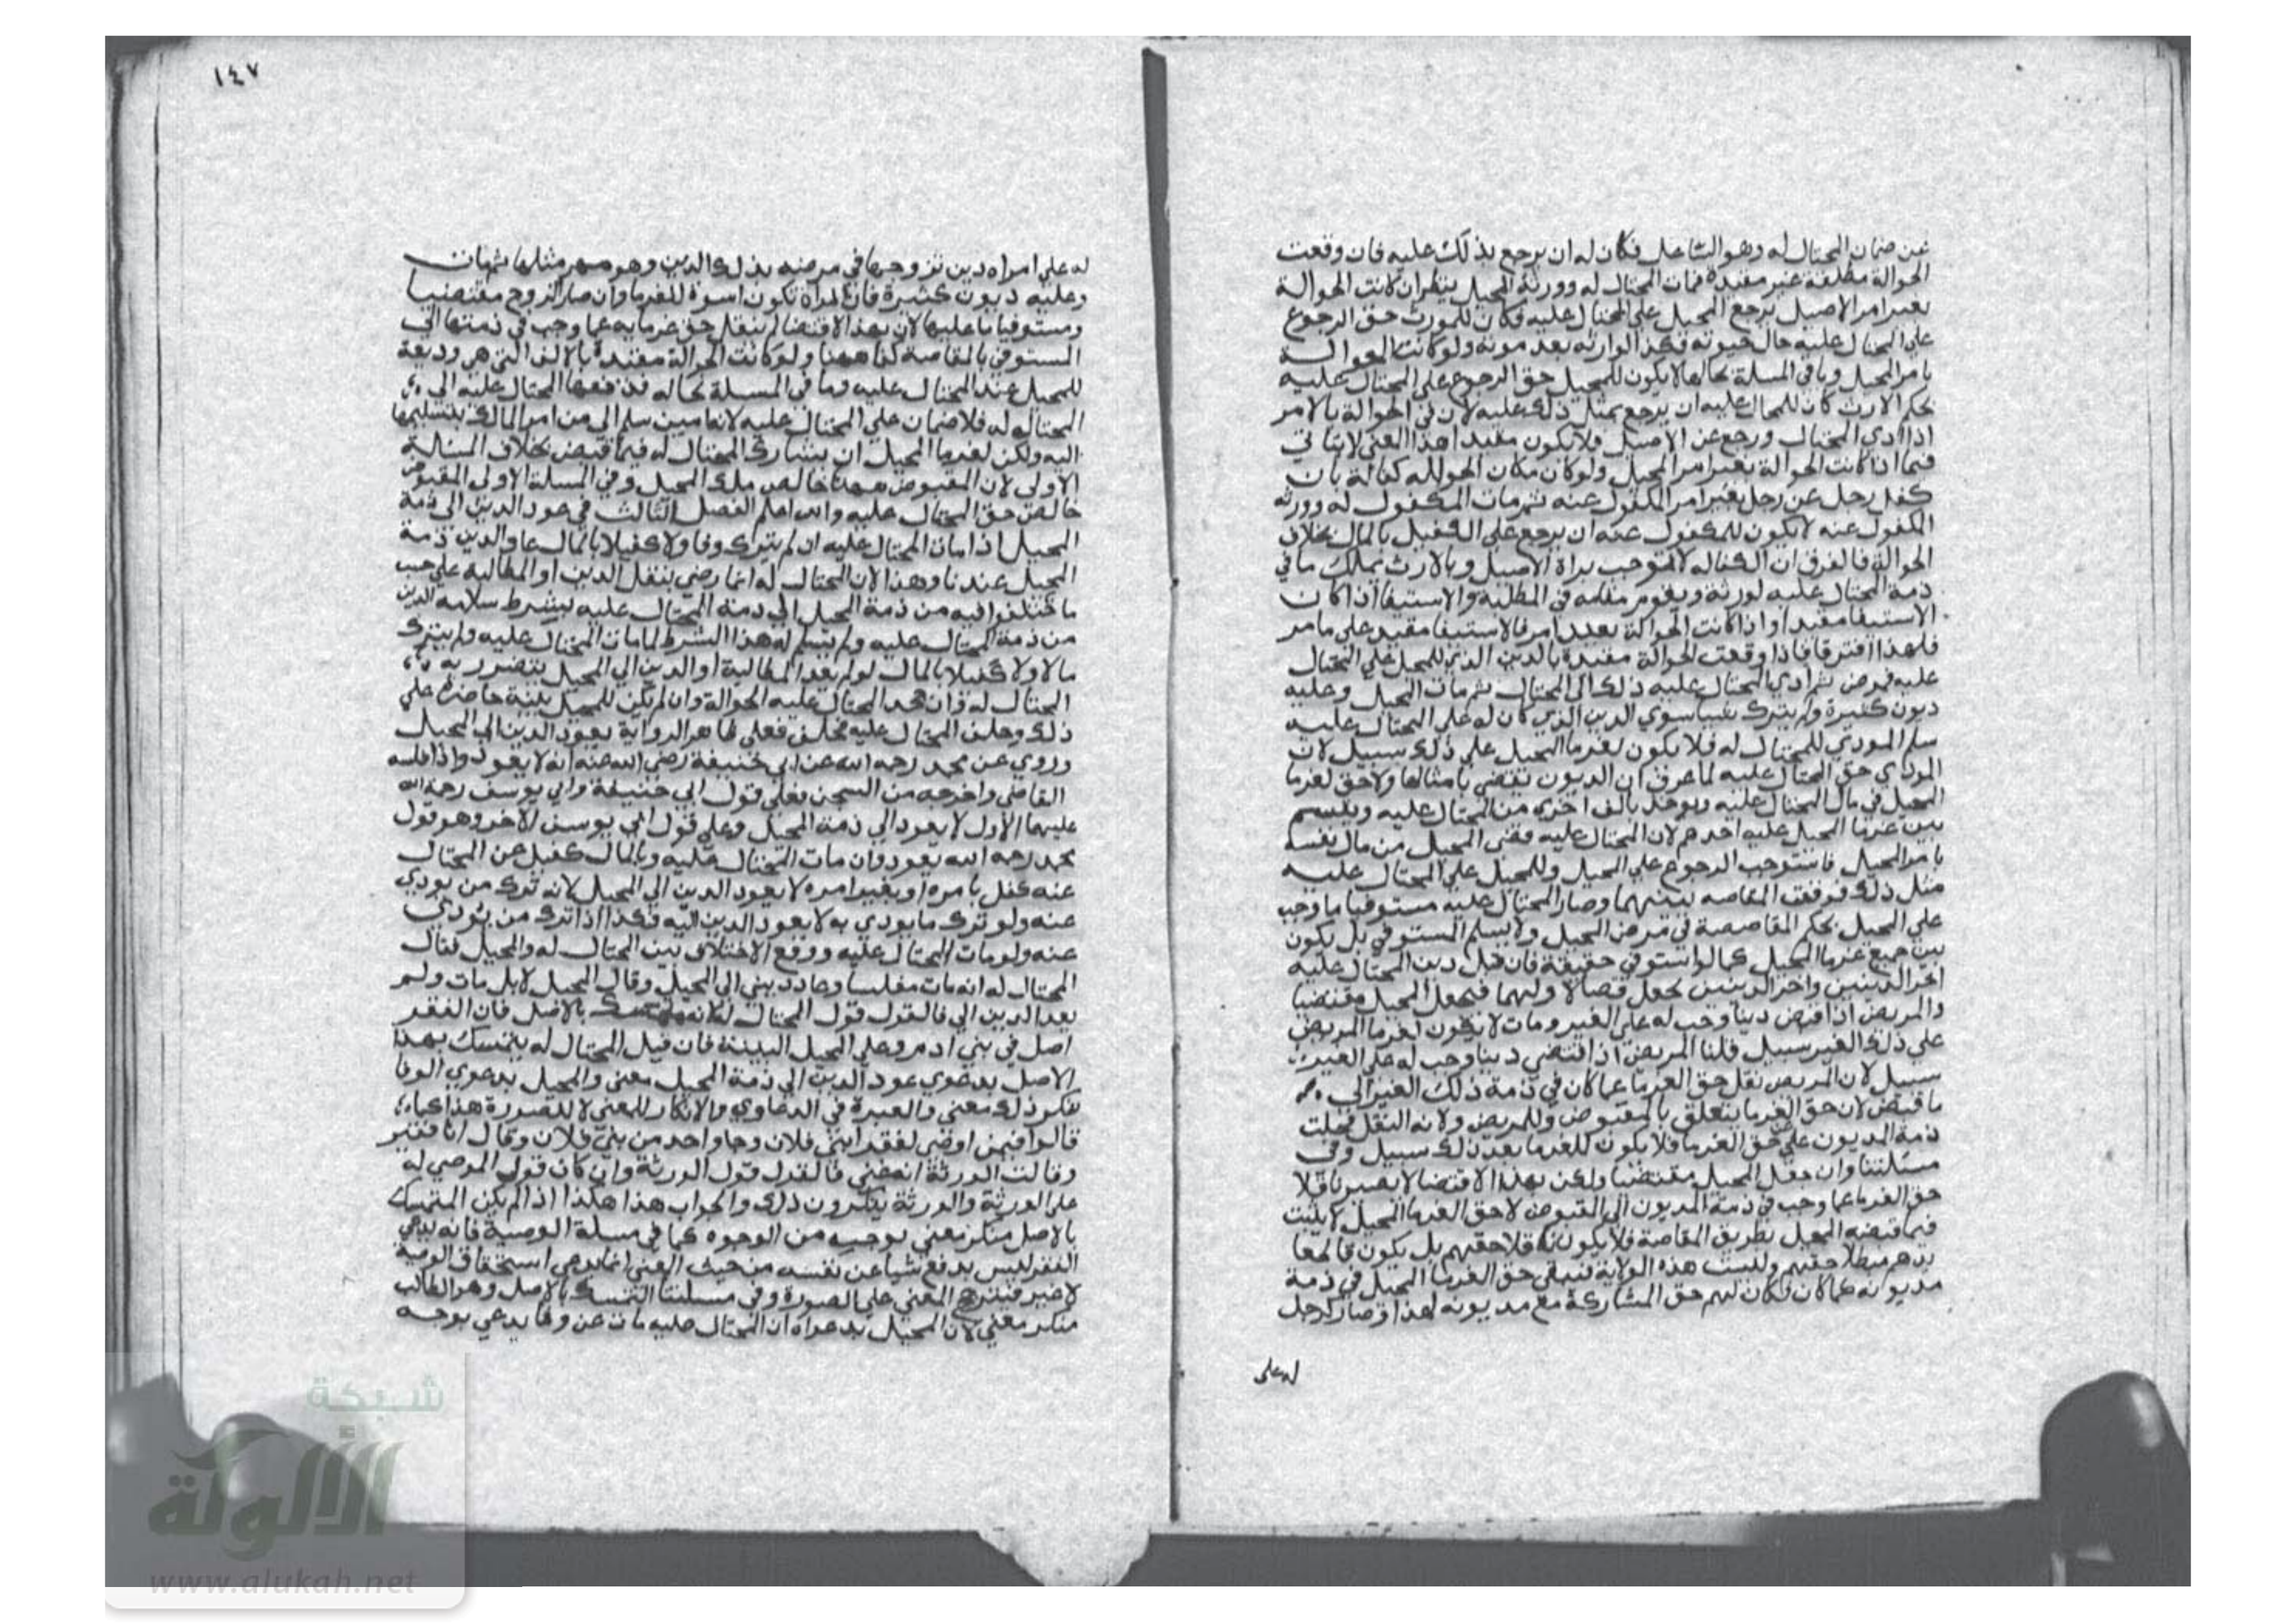 عن ضمان المحتال له وهو الشاغل فكان له ان يرجع بذلك عليه فان وقعت
الحوالة مطلقة غير مقيدة فمات المحتال له وورثه المحيل ينظران كانت الحوالة
بغير امر الاصيل يرجع المحيل على المحتال عليه فكان للمورث حق الرجوع
على المحتال عليه حال حيوته فكذا الوارثه بعد موته ولو كانت الحوالة
بامر المحيل وباقي المسلة بحالها لا يكون للمحيل حق الرجوع على المحتال عليه
بحكم الارث كان للمحال عليه ان يرجع بمثل ذلك عليه لان في الحوالة بالامر
اذا ادي المحتال ورجع عن الاصيل فلا يكون مفيدا هذا المعنى لا يتاتي
فيما اذا كانت الحوالة بغير امر المحيل ولو كان مكان الحوالله كفالة بان
كفل رجل عن رجل بغير امر المكفول عنه ثم مات المكفول له وورثه
المكفول عنه لا يكون للمكفول عنه ان يرجع على الكفيل بالمال بخلاف
الحوالة فالفرق ان الكفاله لا توجب براة الاصيل وبالارث يملك ما في
ذمة المحتال عليه لورثة ويقوم مقامه في المطلبة والاستيفا اذا كان
الاستيفا مفيدا واذا كانت الحوالة بعدد امر فالاستيفا مقيد على ما مر
فلهذا افترقا فاذا وقعت الحوالة مقيدة بالدين الذي للمحيل على المحتال
عليه فمرض ثم ادي المحتال عليه ذلك الى المحتال ثم مات المحيل وعليه
ديون كثيرة ولم يترك شيا سوي الدين الذي كان له على المحتال عليه
سلم المودي للمحتال له فلا يكون لغرما المحيل على ذلك سبيل لان
المودي حق المحتال عليه لما عرف ان الديون تقضي بامثالها ولا حق لغرما
المحيل في مال المحتال عليه ويوخذ بالف اخري من المحتال عليه ويقسم
بين غرما المحيل عليه احدهم لان المحتال عليه قضى المحيل من مال نفسه
بامر المحيل فاستوجب الرجوع على المحيل وللمحيل على المحتال عليه
مثل ذلك فوقعت المقاصه بينهما وصار المحتال عليه مستوفيا ما وجب
على المحيل بحكم المقاصصة في مرض المحيل ولا يسلم المستوفي بل يكون
بين جميع غرما المحيل كما لو استوفي حقيقة فان قيل دين المحتال عليه
اخر الدينين واخر الدينين يجعل قصا لا ولهما فيجعل المحيل مقتضيا
والمريض اذا اقتضي دينا وجب له على الغير ومات لا يكون لغرما المريض
على ذلك الغير سبيل قلنا المريض اذا اقتضي دينا وجب له على الغير
سبيل لان المريض نقل حق الغرما عما كان في ذمة ذلك الغير الى
ما قبض لان حق الغرما يتعلق بالمقبوض وللمريض ولاية النقل فجعلت
ذمة المديون على حق الغرما فلا يكون للغرما بعد ذلك سبيل وفي
مسئلتنا وان جعل المحيل مقتضيا ولكن بهذا الاقتضا لا يصير ناقلا
حق الغرما عما وجب في ذمة المديون الى المقبوض لا حق الغرما المحيل لا يثبت
فيما قبضه المحيل بطريق المقاصة فلا يكون ناقلا حقهم بل يكون قاطعا
بدهم مبطلا حقهم وليست هذه الولاية فيبقى حق الغرما المحيل في ذمة
مديونه كما كان فكان لهم حق المشاركة مع مديونه لهذا وصار كرجل
له على
١٤٧
له على امراه دين تزوجها في مرضه بذلك الدين وهو مهر مثلها ثم مات
وعليه ديون كثيرة فان المراة تكون اسوة للغرما وان صار الزوج مقتضيا
ومستوفيا ما عليها لان بهذا الاقتضا لم ينقل حق غرمايه عما وجب في ذمتها الى
المستوفي بالمقاصة كذا ههنا ولو كانت الحوالة مقيدة بالالف التي هي وديعة
للمحيل عند المحتال عليه وما في المسلة بحاله فدفعها المحتال عليه الى
المحتال له فلا ضمان على المحتال عليه لانه امين سلم الى من امر المالك بتسليمها
اليه ولكن لغرما المحيل ان يشارك المحتال له فيما قبض بخلاف المسئالة
الاولى لان المقبوض ههنا خالص ملك المحيل وفي المسلة الاولى المقبوض
خالص حق المحتال عليه والله اعلم الفصل الثالث في عود الدين الى ذمة
المحيل اذا مات المحتال عليه ان لم يترك وفا ولا كفيلا بالمال عاد الدين ذمة
المحيل عندنا وهذا لان المحتال له انما رضي بنقل الدين او المطالبة على حسب
ما مختلفوا فيه من ذمة المحيل الى ذمة المحتال عليه بشرط سلامة الدين
من ذمة المحتال عليه ولم يسلم له هذا الشرط لما مات المحتال عليه ولم يترك
مالا ولا كفيلا بالمال لو لم يعد المطالبة او الدين الى المحيل يتضرر به
المحتال له وان جحد المحتال عليه الحوالة وان لم يكن للمحيل بينة حاضرة على
ذلك وحلف المحتال عليه يحلف فعلى ظاهر الرواية يعود الدين الى المحيل
وروي عن محمد رحمه الله عن ابي حنيفة رضي الله عنه انه لا يعود واذا فلسه
القاضي واخرجه من السجن فعلى قول ابي حنيفة وابي يوسف رحمة الله
عليهما الاول لا يعود الى ذمة المحيل وعلى قول ابي يوسف الاخر وهو قول
محمد رحمه الله يعود وان مات المحتال عليه وبالمال كفيل عن المحتال
عنه كفل بامره او بغير امره لا يعود الدين الى المحيل لانه ترك من يودي
عنه ولو ترك ما يودي به لا يعود الدين اليه فكذا اذا ترك من يودي
عنه ولو مات المحتال عليه ووقع الاختلاف بين المحتال له والمحيل فقال
المحتال له انه مات مفلسا وعاد ديني الى المحيل وقال المحيل لا بل مات ولم
يعد الدين الي فالقول قول المحتال له لانه يتمسك بالاصل فان الفقر
اصل في بني ادم وعلى المحيل البينة فان قيل المحتال له يتمسك بهذا
الاصل بدعوي عود الدين الى ذمة المحيل معنى والمحيل بدعوي الوفا
ينكر ذلك معنى والعبرة في الدعاوي والانكار للمعنى لا للصورة هذا كما
قالوا فيمن اوصى لفقرا بني فلان وجا واحد من بني فلان وقال انا فقير
وقالت الورثة انه غني فالقول قول الورثة وان كان قول الموصي له
على الورثة والورثة ينكرون ذلك والجواب هذا هكذا اذا لم يكن المتمسك
بالاصل منكر معنى بوجه من الوجوه كما في مسلة الوصية فانه يدعي
الفقر ليس بدفع شيا عن نفسه من حيث المعنى انما يدعي استحقاق الوصية
لا غير فيترجح المعنى على الصورة وفي مسلتنا المتمسك بالاصل وهو الطالب
منكر معنى لان المحيل بدعواه ان المحتال عليه مات عن وفا يدعي بوجه
شبكة
الألوكة
www.alukah.net